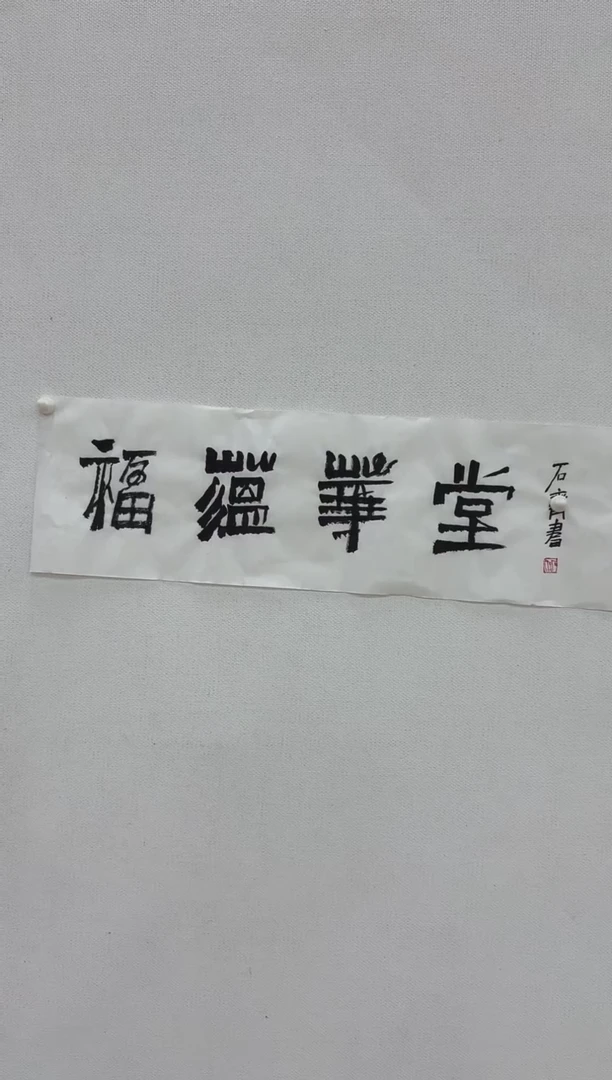 福蘊華堂
石 书